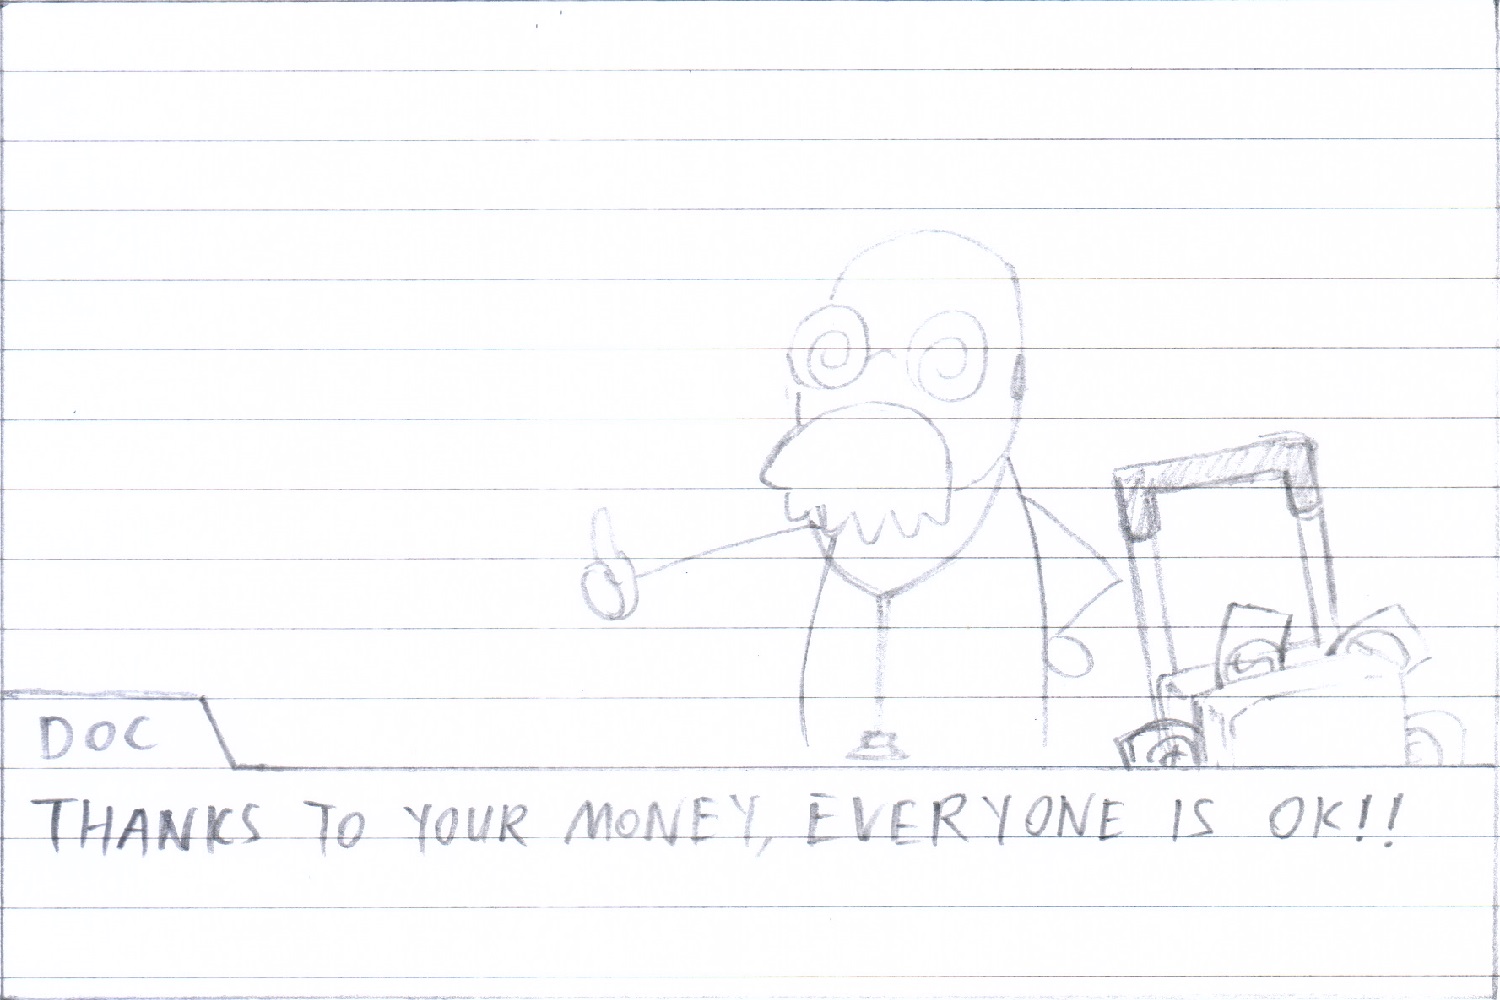 DOC
THANKS TO YOUR MONEY, EVERYONE IS OK!!